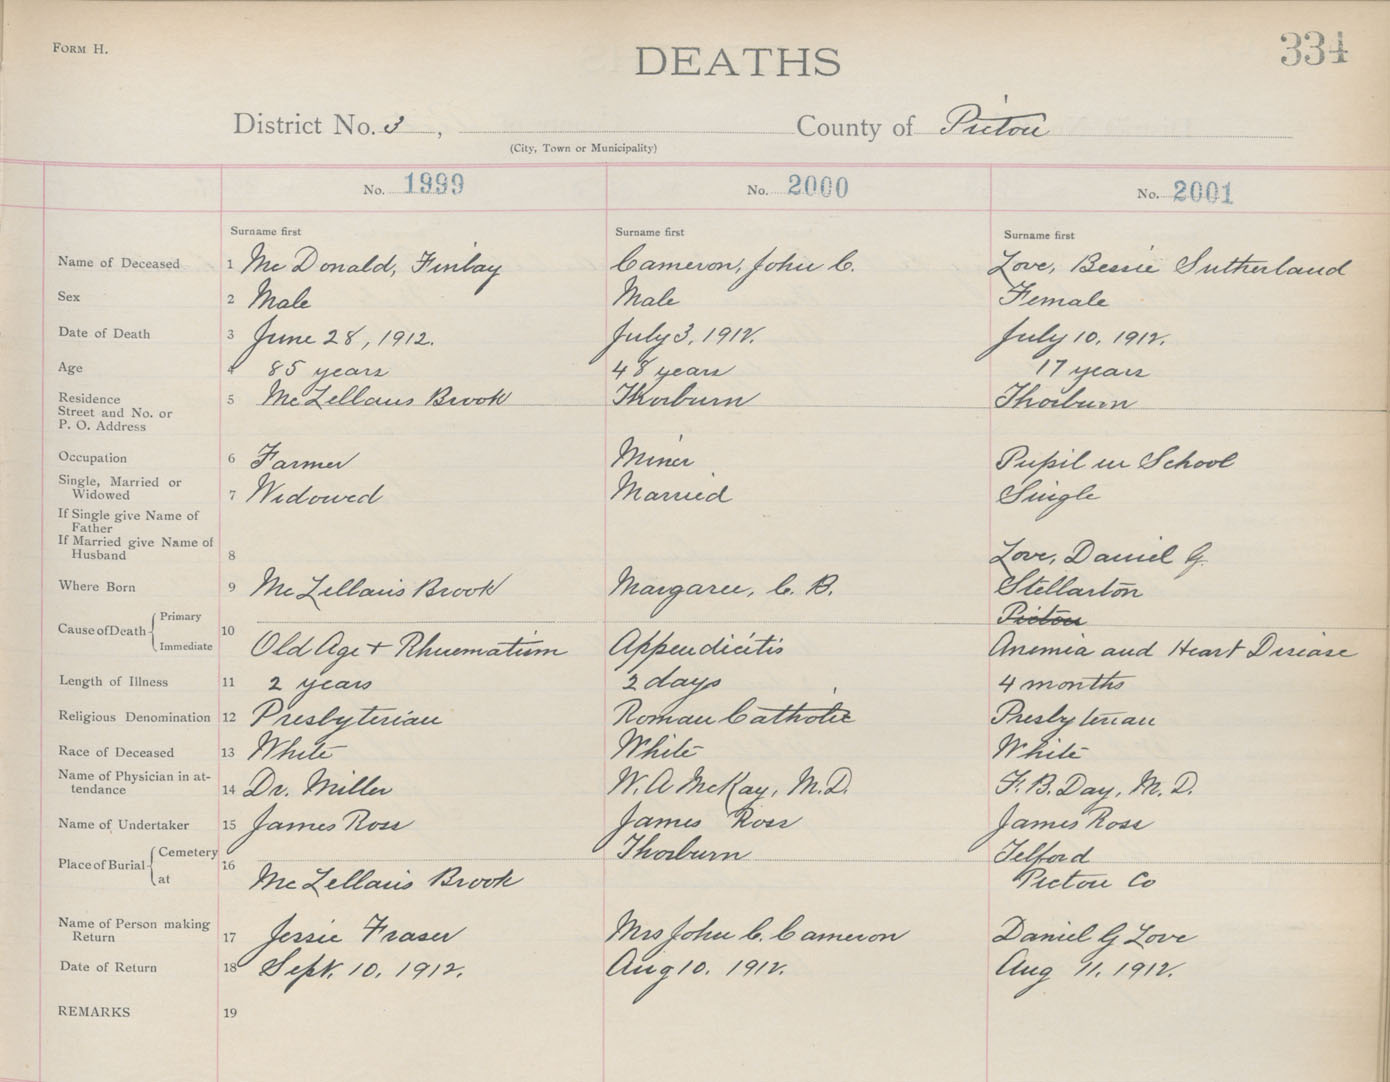 FORM H.
DEATHS
334
District No. 3, County of Pictou
(City, Town or Municipality)
No. 1999 No. 2000 No. 2001
Surname first Surname first Surname first
Name of Deceased 1 McDonald, Finlay Cameron, John C. Love, Bessie Sutherland
Sex 2 Male Male Female
Date of Death 3 June 28, 1912. July 3, 1912. July 10. 1912.
Age 4 85 years 48 years 17 years
Residence Street and No. or P. O. Address 5 McLellans Brook Thorburn Thorburn
Occupation 6 Farmer Miner Pupil in School
Single, Married or Widowed 7 Widowed Married Single
If Single give Name of Father
If Married give Name of Husband 8 Love, Daniel G
Where Born 9 McLellans Brook Margaree, C. B. Stellarton
Pictou
Cause of Death Primary Immediate 10 Old Age + Rhuematism Appendicitis Anemia and Heart Disease
Length of Illness 11 2 years 2 days 4 months
Religious Denomination 12 Presbyterian Roman Catholic Presbyterian
Race of Deceased 13 White White White
Name of Physician in attendance 14 Dr. Miller W. A McKay, M.D. F. B. Day, M. D.
Name of Undertaker 15 James Ross James Ross James Ross
Place of Burial Cemetery 16 Thorburn Telford
at McLellans Brook Pictou Co
Name of Person making Return 17 Jessie Fraser Mrs John C. Cameron Daniel G Love
Date of Return 18 Sept. 10. 1912. Aug 10. 1912. Aug 11. 1912.
REMARKS 19